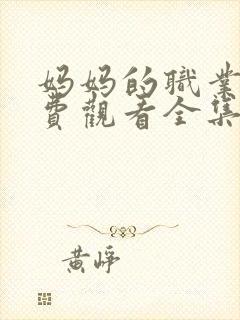 妈妈的職業
費觀看全集
黄峥